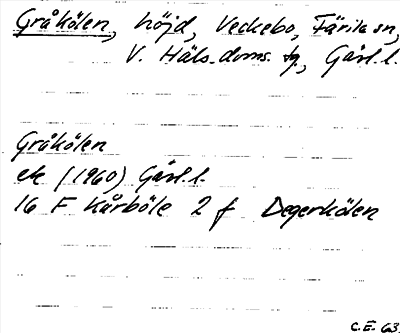 Gråkölen, höjd, Veckebo, Färila sn,
V. Häls. doms. tg., Gävl. l.
Gråkölen
ek (1960) Gävl. l.
16 F Kårböle 2 f Degerkölen
C.E. 63.